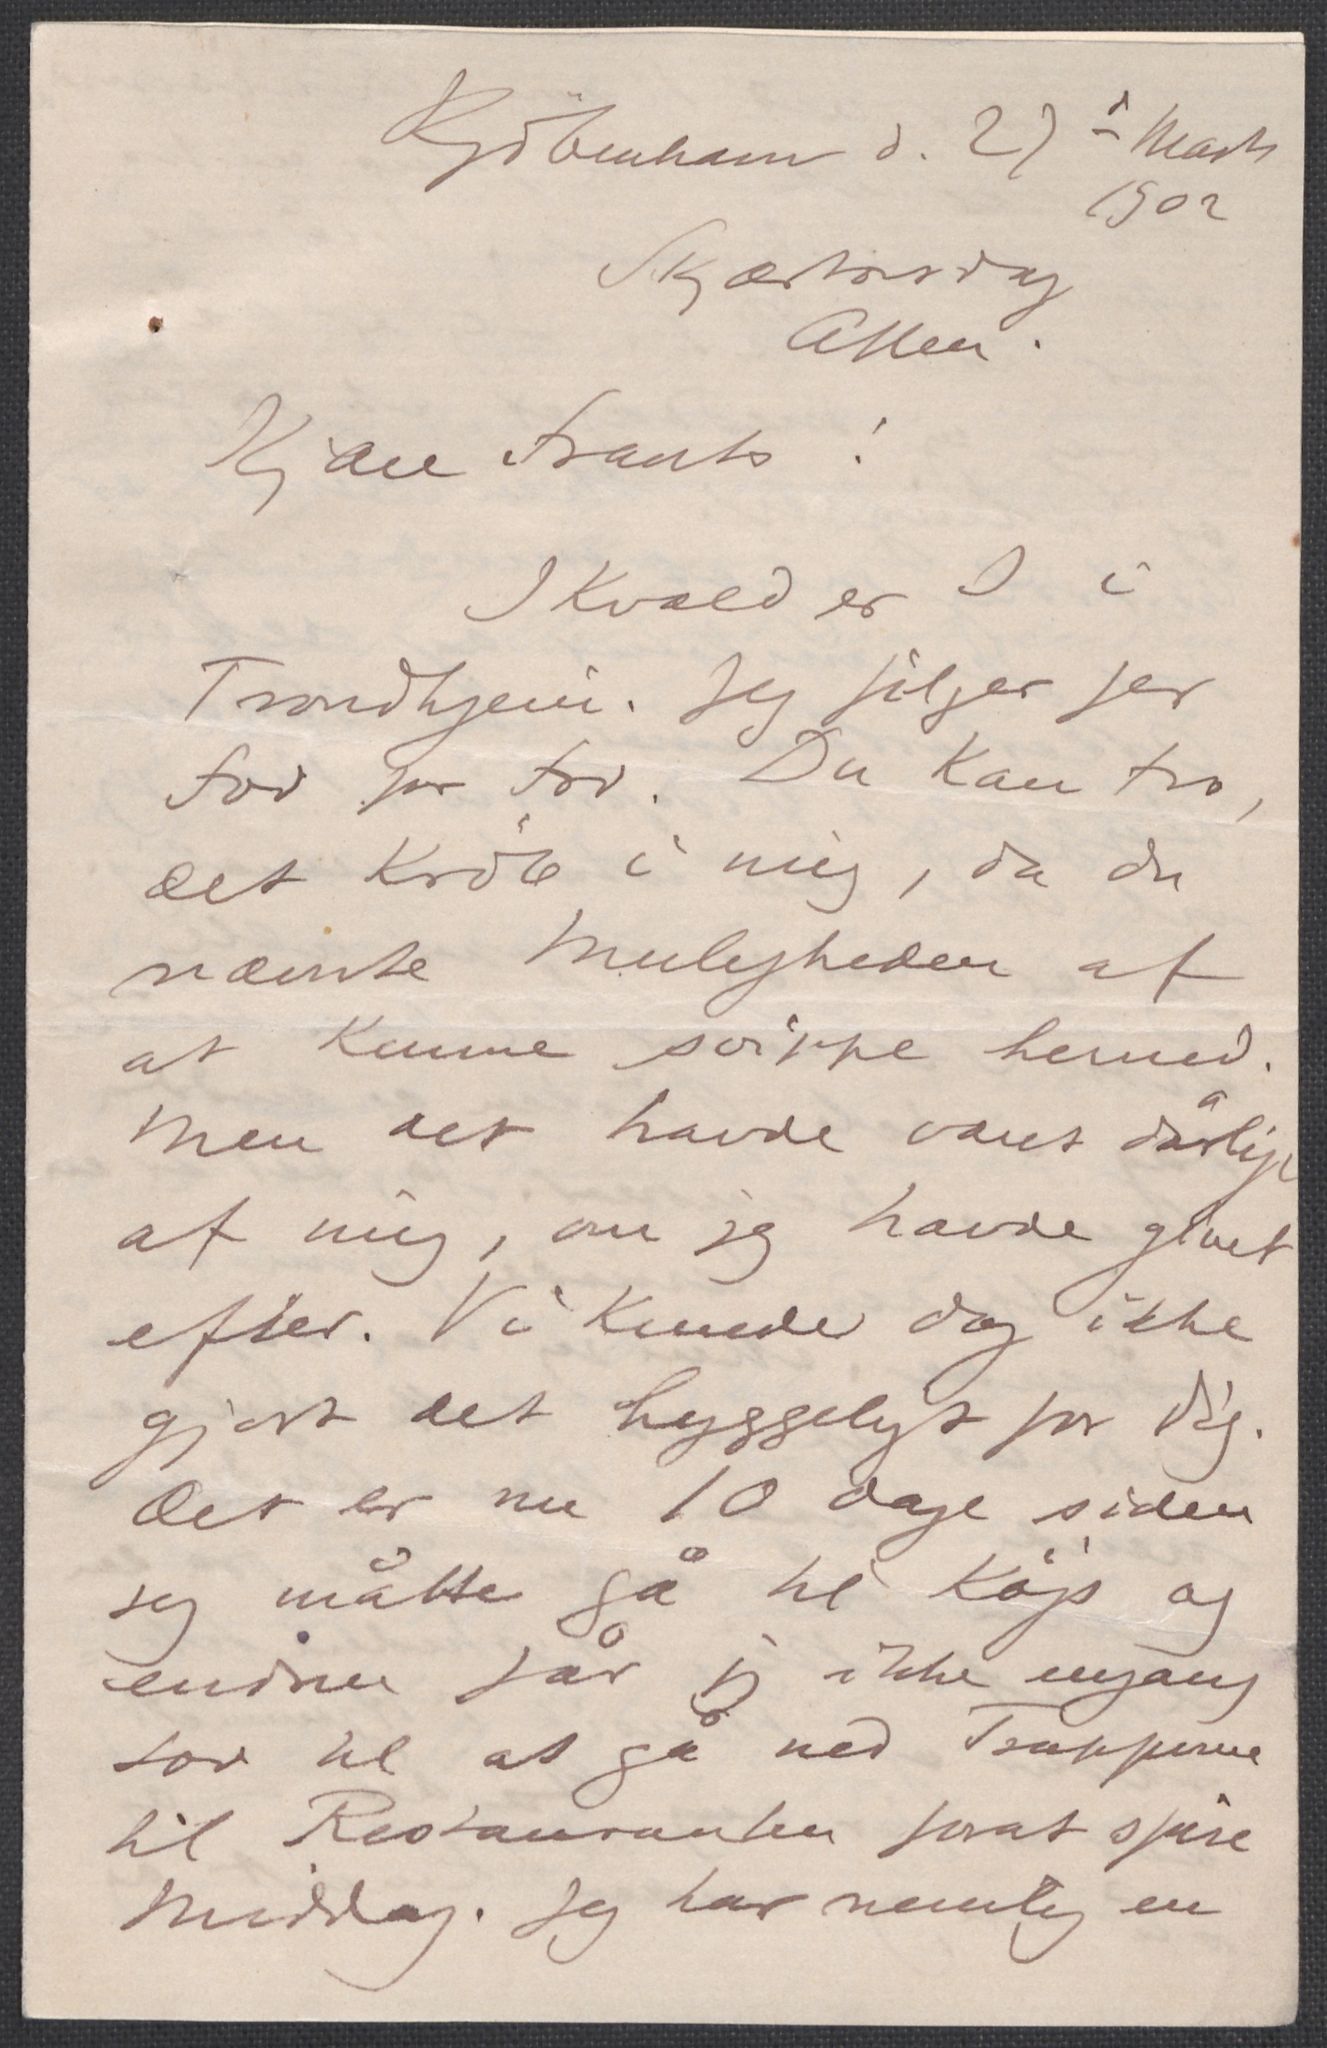 Kjöbenhavn d. 27de Marts
1902
Skjærtorsdag
Aften.
Kjære Frants!
I Kvæld er I i
Trondhjem. Jeg følger jer
Fod for Fod. Du kan tro,
det kröb i mig, da du
nævnte Muligheden af
at kunne svippe herned.
Men det havde været dårligt
af mig, om jeg havde givet
efter. Vi kunde dog ikke
gjort det hyggeligt for dig.
Det er nu 10 dage siden
jeg måtte gå til Köjs og
endnu får jeg ikke engang
Lov til at gå ned Trapperne
til Restauranten forat spise
Middag. Jeg har nemlig en